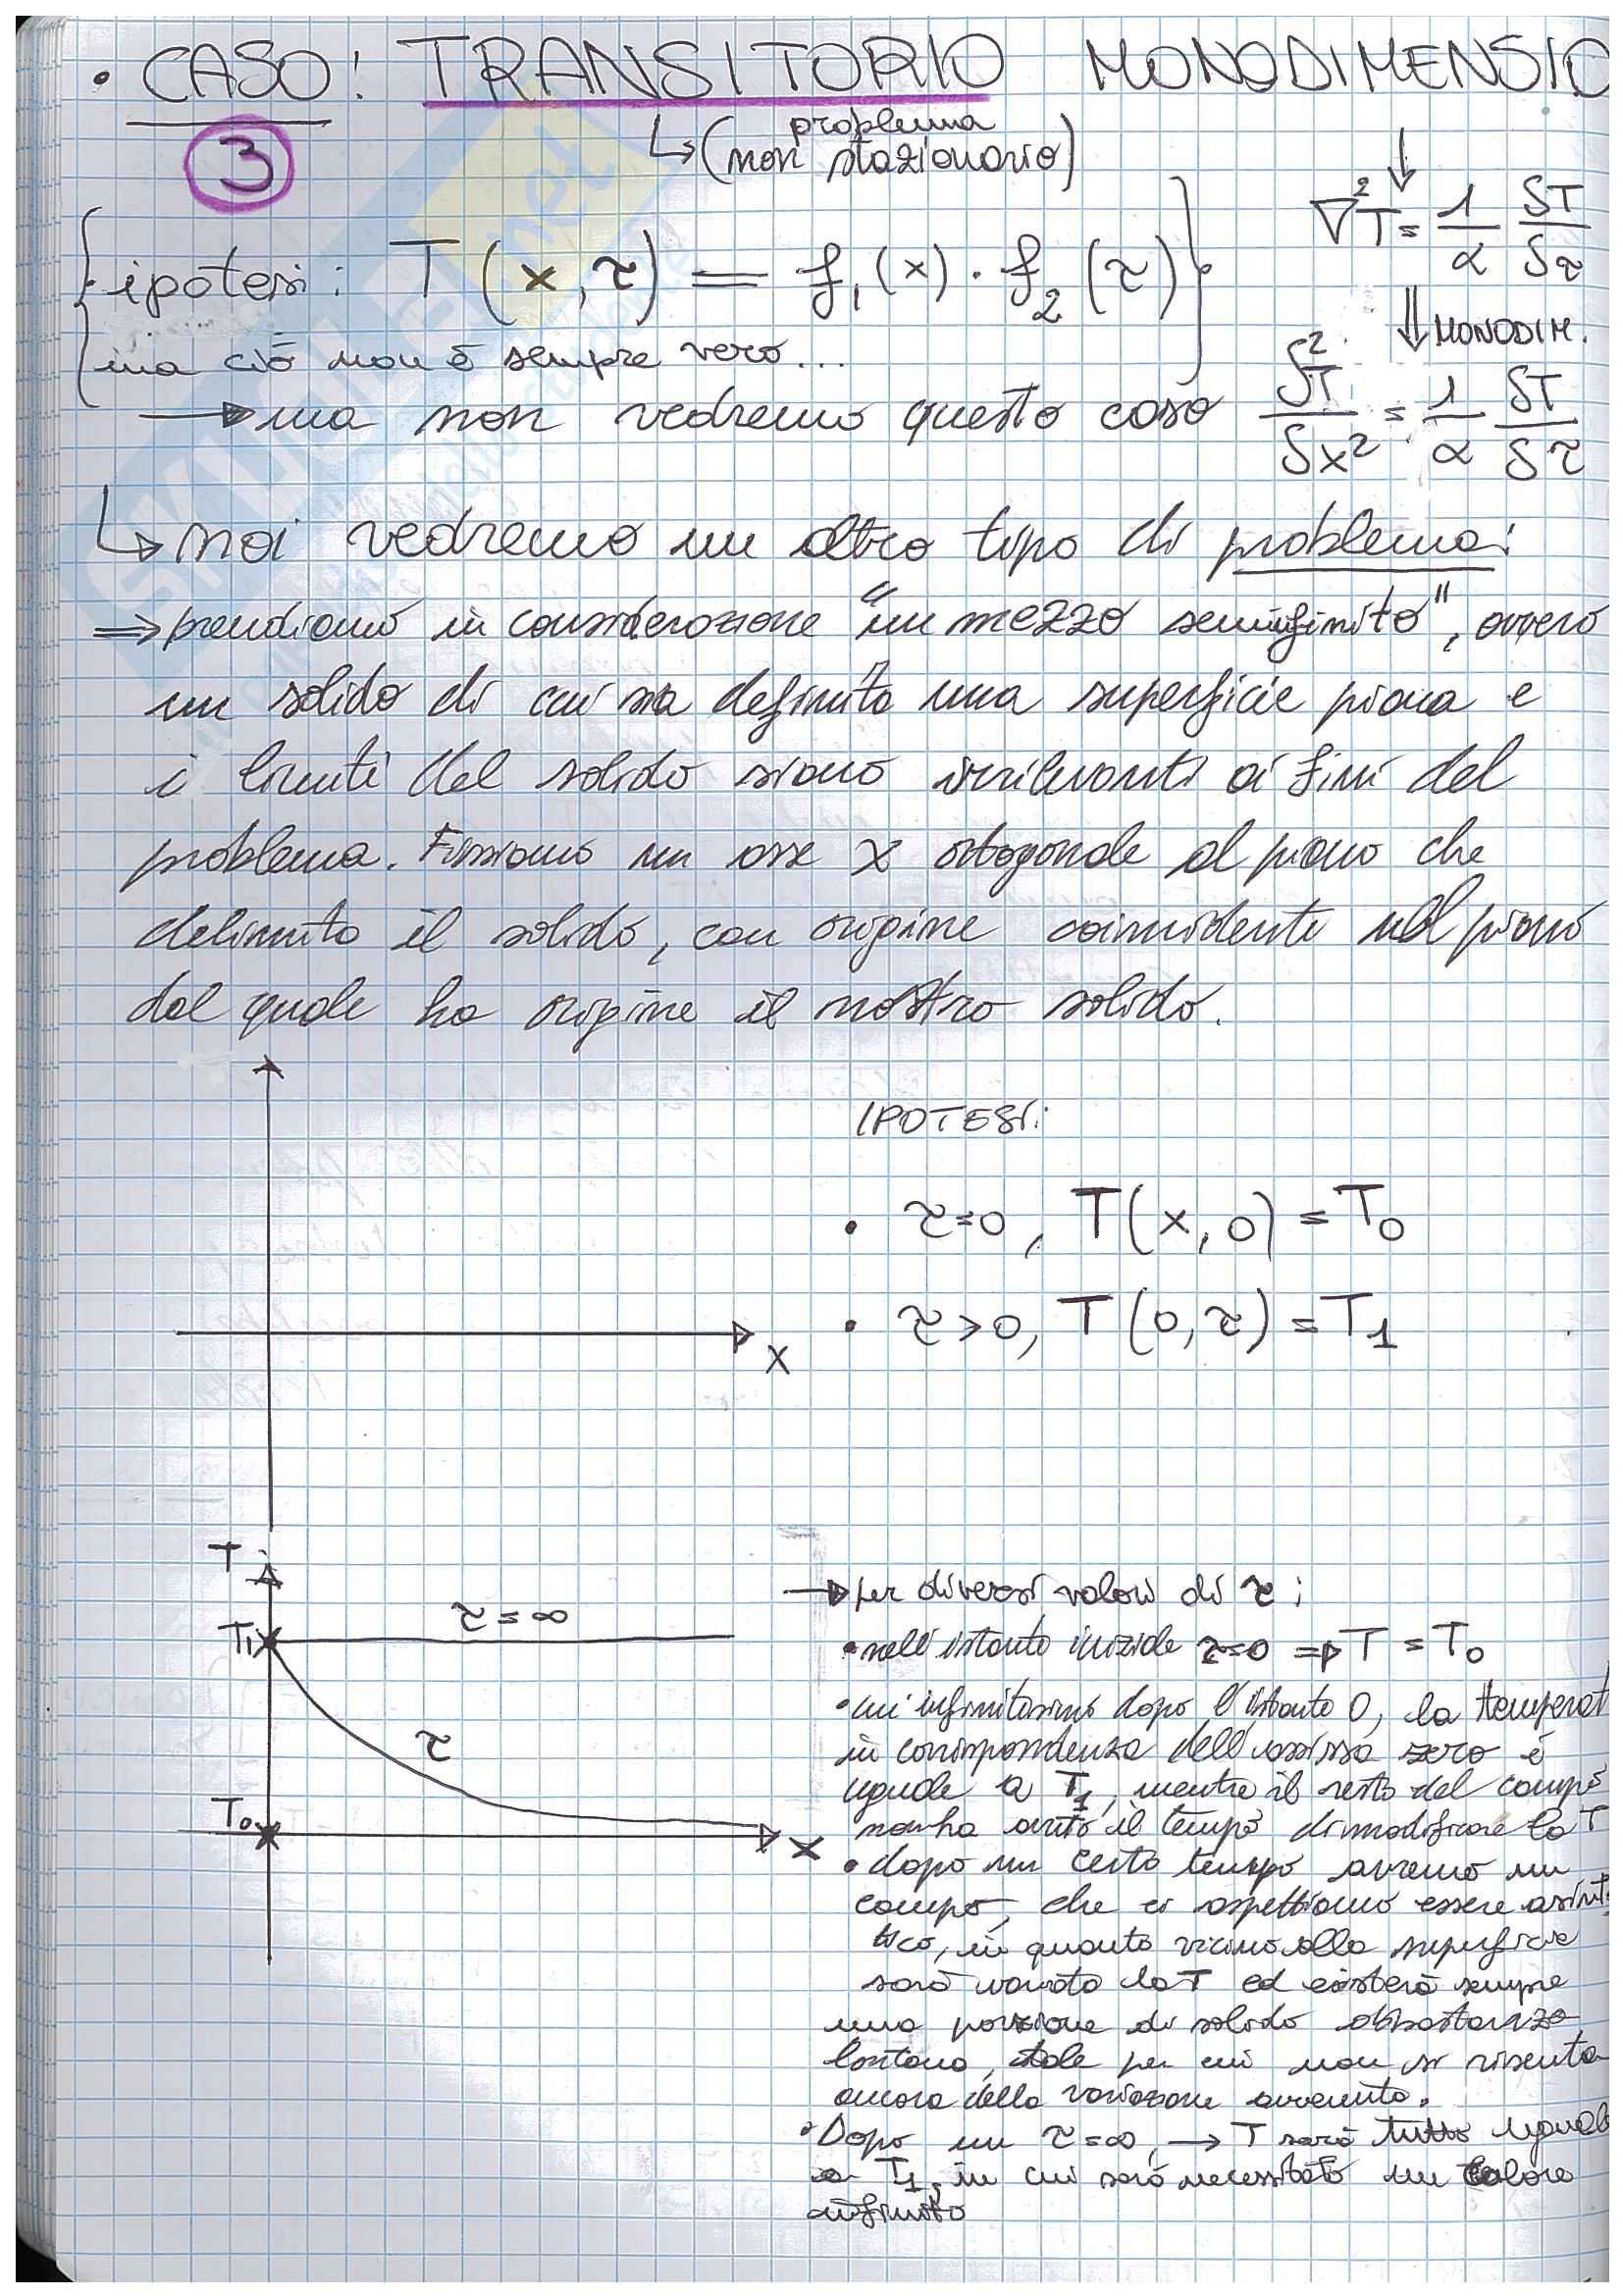 • CASO: TRANSITORIO MONODIMENSIO
3
↳ (problema non stazionario)
∇²T = 1/α δT/δτ
ipotesi: T(x,τ) = f₁(x) · f₂(τ)
⇓ MONODIM.
ma ciò non è sempre vero...
→ ma non vedremo questo caso
δ²T/δx² = 1/α δT/δτ
↳ noi vedremo un altro tipo di problema:
⇒ prendiamo in considerazione "un mezzo seminfinito", ovvero
un solido di cui sia definita una superficie piana e
i limiti del solido siano irrilevanti ai fini del
problema. Fissiamo un asse x ortogonale al piano che
delimita il solido, con origine coincidente nel piano
dal quale ha origine il nostro solido.
IPOTESI:
• τ=0, T(x,0) = T₀
• τ>0, T(0,τ) = T₁
x
T
τ = ∞
T₁
τ
T₀
x
→ per diversi valori di τ:
• nell'istante iniziale τ=0 ⇒ T = T₀
• un infinitesimo dopo l'istante 0, la temperat
in corrispondenza dell'ascissa zero è
uguale a T₁, mentre il resto del campo
non ha avuto il tempo di modificare la T
• dopo un certo tempo avremo un
campo, che ci aspettiamo essere asint
tico, in quanto vicino alla superficie
sarà variata la T ed esisterà sempre
una porzione di solido abbastanza
lontana, tale per cui non si risenta
ancora della variazione avvenuta.
• Dopo un τ=∞, → T sarà tutto uguale
a T₁, in cui sarà necessitato un calore
infinito